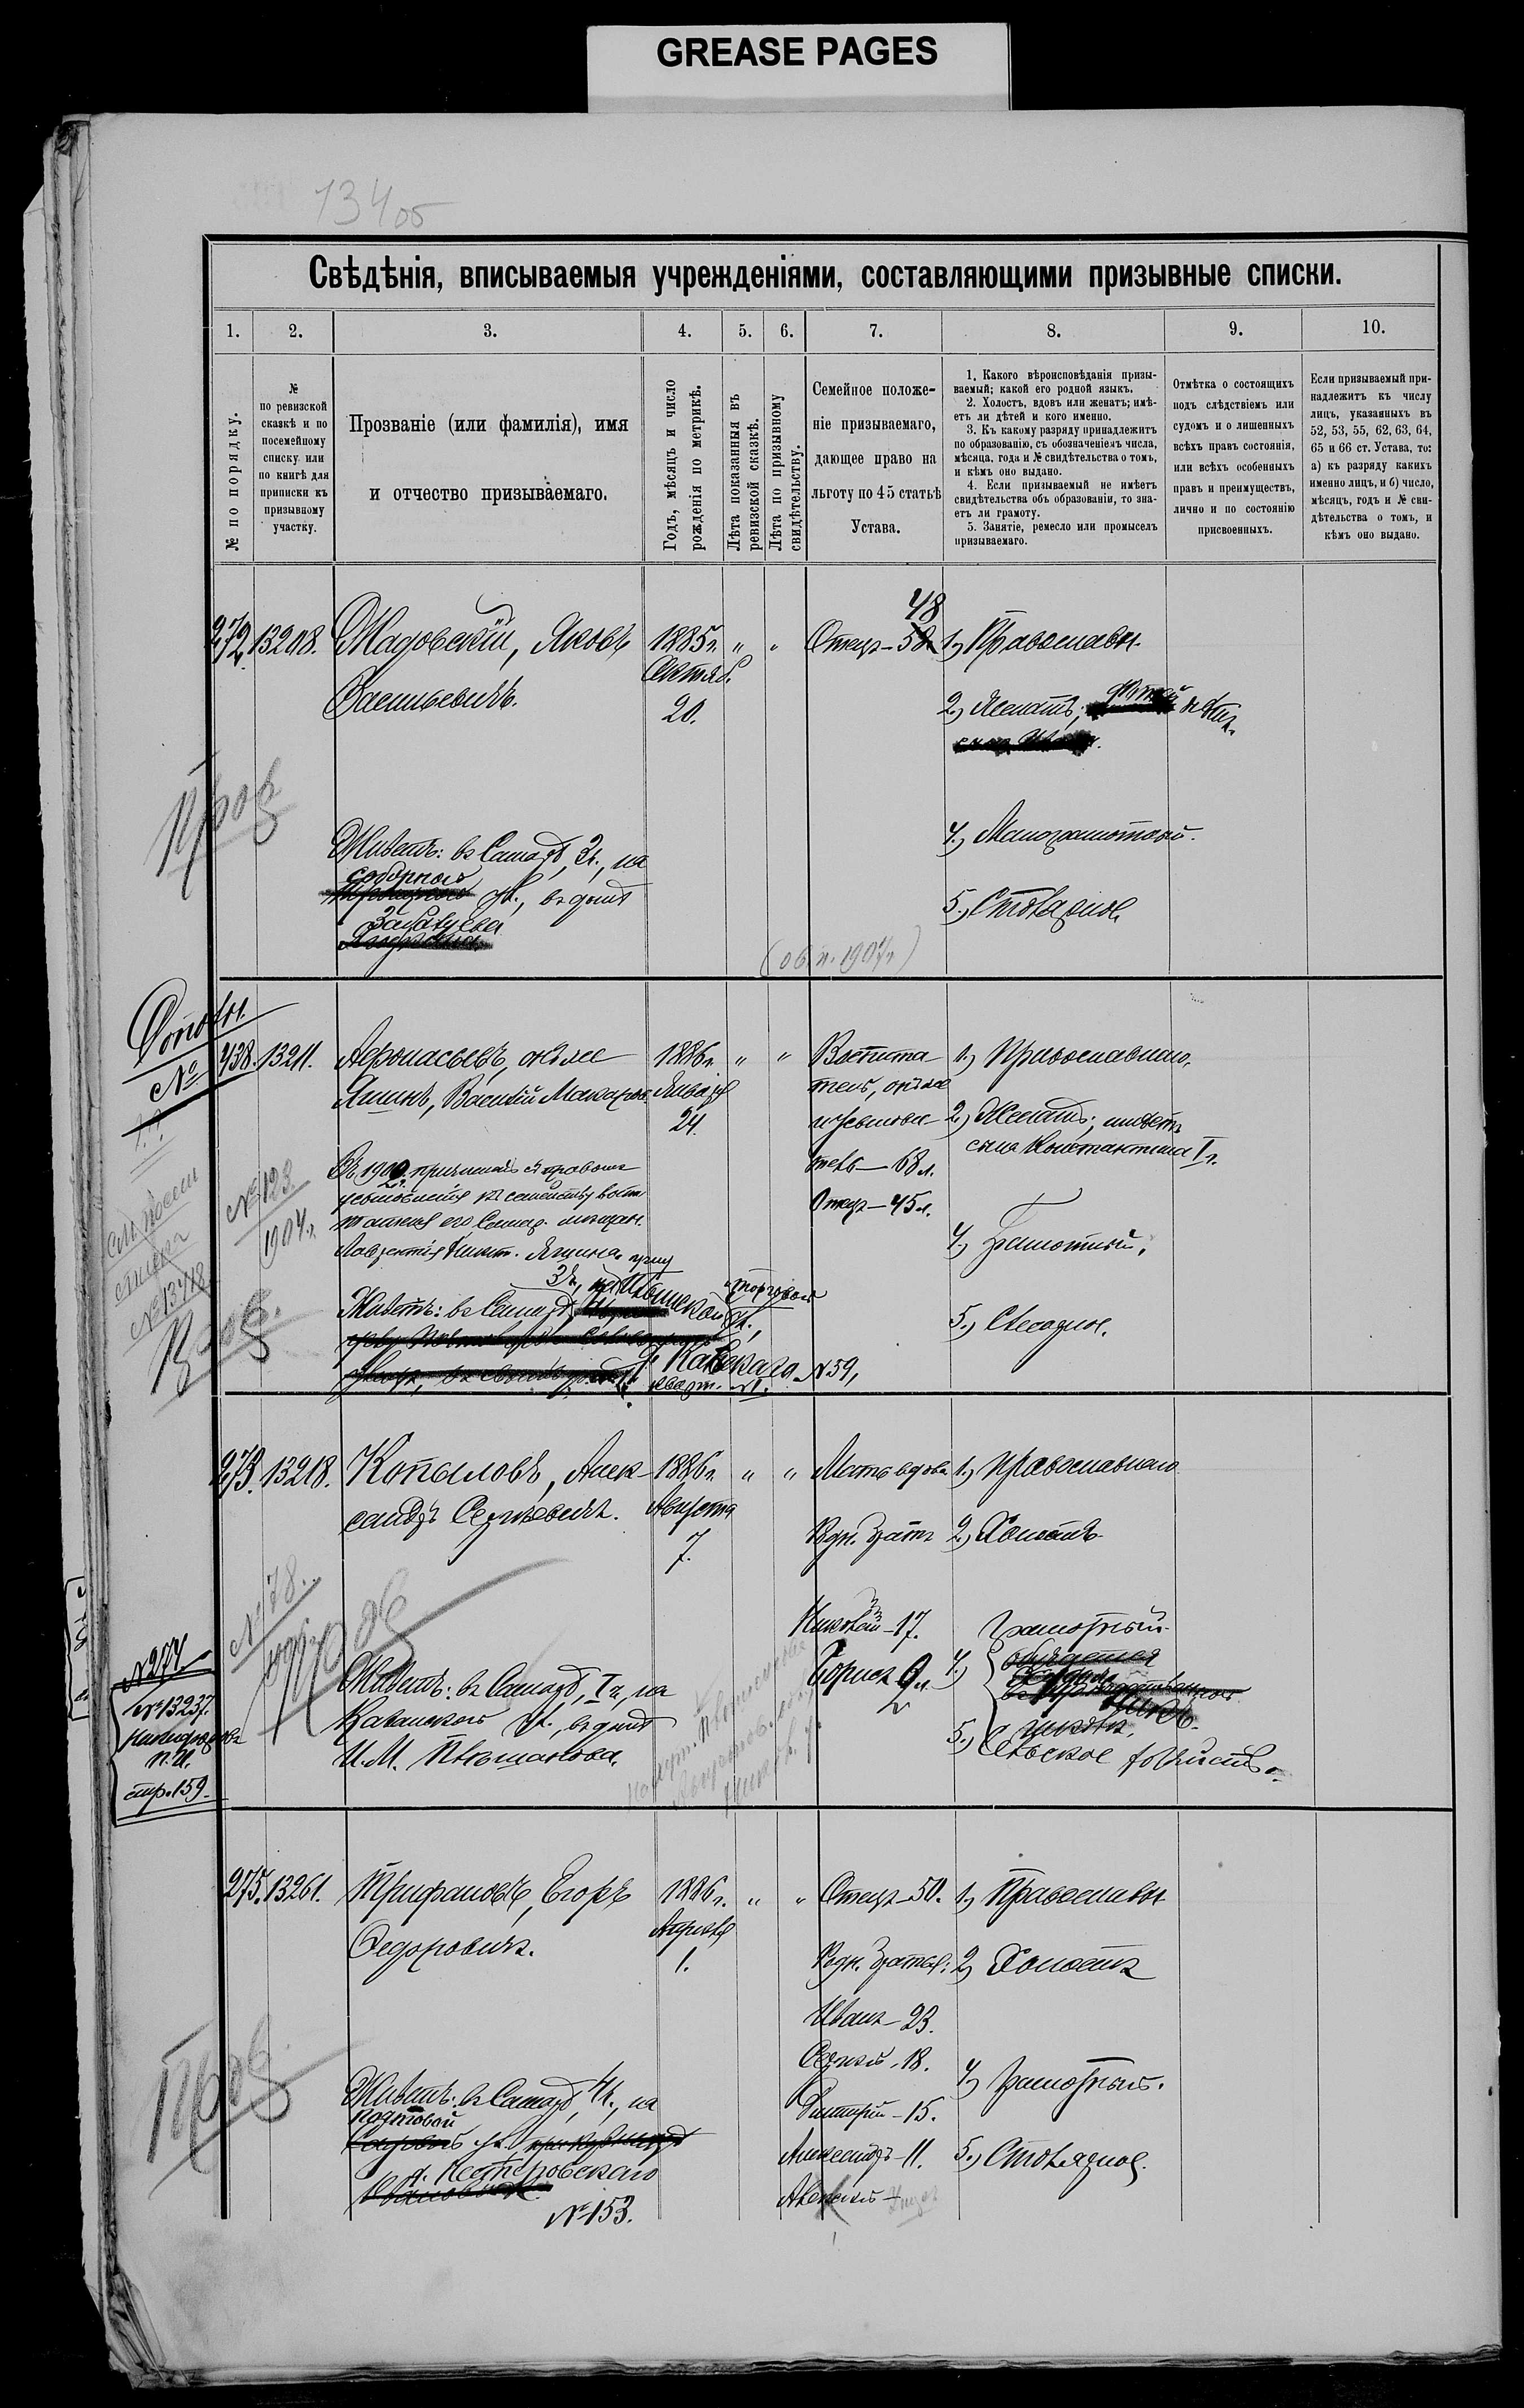 GREASE PAGES
134 об
Свѣдѣнія, вписываемыя учрежденіями, составляющими призывные списки.
1. 2. 3. 4. 5. 6. 7. 8. 9. 10.
№ по порядку.
№
по ревизской
сказкѣ и по
посемейному
списку или
по книгѣ для
приписки къ
призывному
участку.
Прозваніе (или фамилія), имя
и отчество призываемаго.
Годъ, мѣсяцъ и число
рожденія по метрикѣ.
Лѣта показанныя въ
ревизской сказкѣ.
Лѣта по призывному
свидѣтельству.
Семейное положе-
ніе призываемаго,
дающее право на
льготу по 45 статьѣ
Устава.
1. Какого вѣроисповѣданія призы-
ваемый; какой его родной языкъ.
2. Холостъ, вдовъ или женатъ; имѣ-
етъ ли дѣтей и кого именно.
3. Къ какому разряду принадлежитъ
по образованію, съ обозначеніемъ числа,
мѣсяца, года и № свидѣтельства о томъ,
и кѣмъ оно выдано.
4. Если призываемый не имѣетъ
свидѣтельства объ образованіи, то зна-
етъ ли грамоту.
5. Занятіе, ремесло или промыселъ
призываемаго.
Отмѣтка о состоящихъ
подъ слѣдствіемъ или
судомъ и о лишенныхъ
всѣхъ правъ состоянія,
или всѣхъ особенныхъ
правъ и преимуществъ,
лично и по состоянію
присвоенныхъ.
Если призываемый при-
надлежитъ къ числу
лицъ, указанныхъ въ
52, 53, 55, 62, 63, 64,
65 и 66 ст. Устава, то:
а) къ разряду какихъ
именно лицъ, и б) число,
мѣсяцъ, годъ и № сви-
дѣтельства о томъ, и
кѣмъ оно выдано.
272. 13208. Жадовскій, Яковъ
Васильевичъ.
1885 г. " "
Октяб.
20.
48
Отецъ - 58
1.) Православн.
2.) Женатъ, дѣтей нѣтъ.
4.) Малограмотный.
5.) Столярное.
Пров
Живетъ: въ Самарѣ, 3 ч., на
соборной
ул., въ домѣ
(об п. 1907 г.)
Дополн.
№ 438. 13211. Афонасьевъ, онъ же
Яшинъ, Василій Макаров.
1886 г. " "
Января
24.
Воспита
тель, онъ же
усынови-
тель - 68 л.
Отецъ - 45 л.
1.) Православнаго,
2.) Женатъ; имѣетъ
сына Константина 1 г.
4.) Грамотный.
5.) Слесарное.
№ 123
1904 г.
№ 13418
Пров.
Въ 1902 г. причисленъ съ правомъ
усыновленія къ семейству воспи
тателя его Самар. мѣщан.
Живетъ: въ Самарѣ, 3 ч.,
№ 59,
кварт. № 1.
273. 13218. Копыловъ, Алек-
сандръ Сергѣевичъ.
1886 г. " "
Августа
7.
Мать вдова
Родн. братъ
Николай - 17.
Борисъ 9 л.
1.) Православнаго
2.) Холостъ
4.) Грамотный
5.) Сельское хозяйство.
№ 78.
Пров
Живетъ: въ Самарѣ, I ч., на
Казанской ул., въ домѣ
И. М. Плѣшанова.
№ 274
№ 13237.
Никифоровъ
П. И.
стр. 159.
275. 13261. Трифановъ, Егоръ
Федоровичъ.
1886 г. " "
Апрѣля
1.
Отецъ - 50.
Родн. братья:
Иванъ - 23.
Сергѣй - 18.
Дмитрій - 15.
Александръ - 11.
Алексѣй - Умеръ
1.) Православн
2.) Холостъ
4.) Грамотный.
5.) Столярное.
Пров
Живетъ: въ Самарѣ, 4 ч., на
почтовой
ул.
д. Нестеровскаго
№ 153.